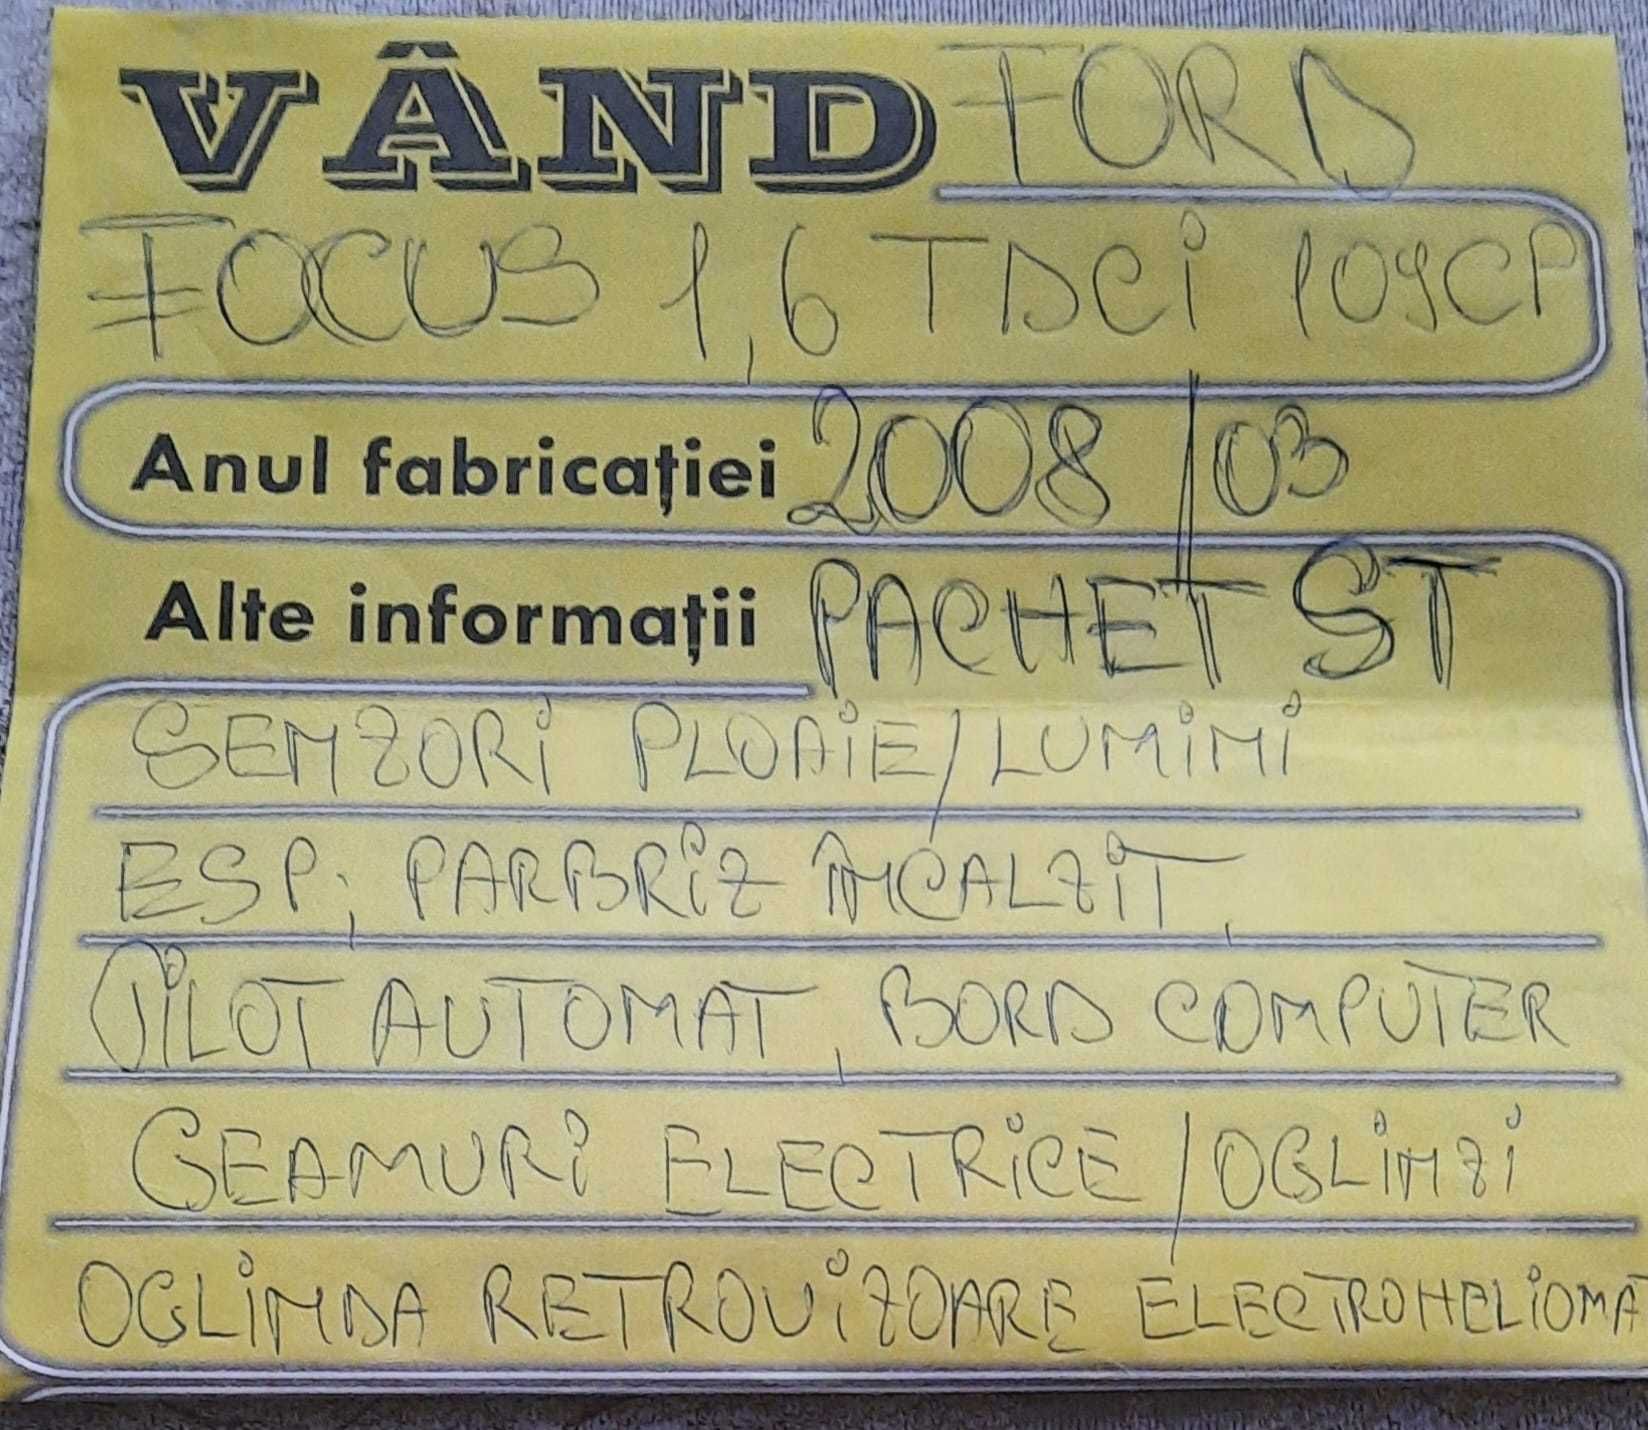 VÂND FORD
FOCUS 1,6 TDCi 109CP
Anul fabricației 2008/03
Alte informații PACHET ST
SENZORi PLOAiE/LUMiNi
ESP; PARBRiZ ÎNCALZiT,
PiLOT AUTOMAT, BORD COMPUTER
GEAMURi ELECTRiCE/OGLiNZi
OGLiNDA RETROViZOARE ELECTROHELiOMA